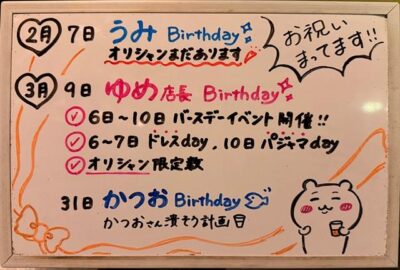 2月 7日 うみ Birthday
オリシャンまだあります
お祝い
まってます!!
3月 9日 ゆめ店長 Birthday
6日〜10日 バースデーイベント開催!!
6〜7日 ドレスday, 10日 パジャマday
オリシャン限定数
31日 かつお Birthday
かつおさん潰そう計画